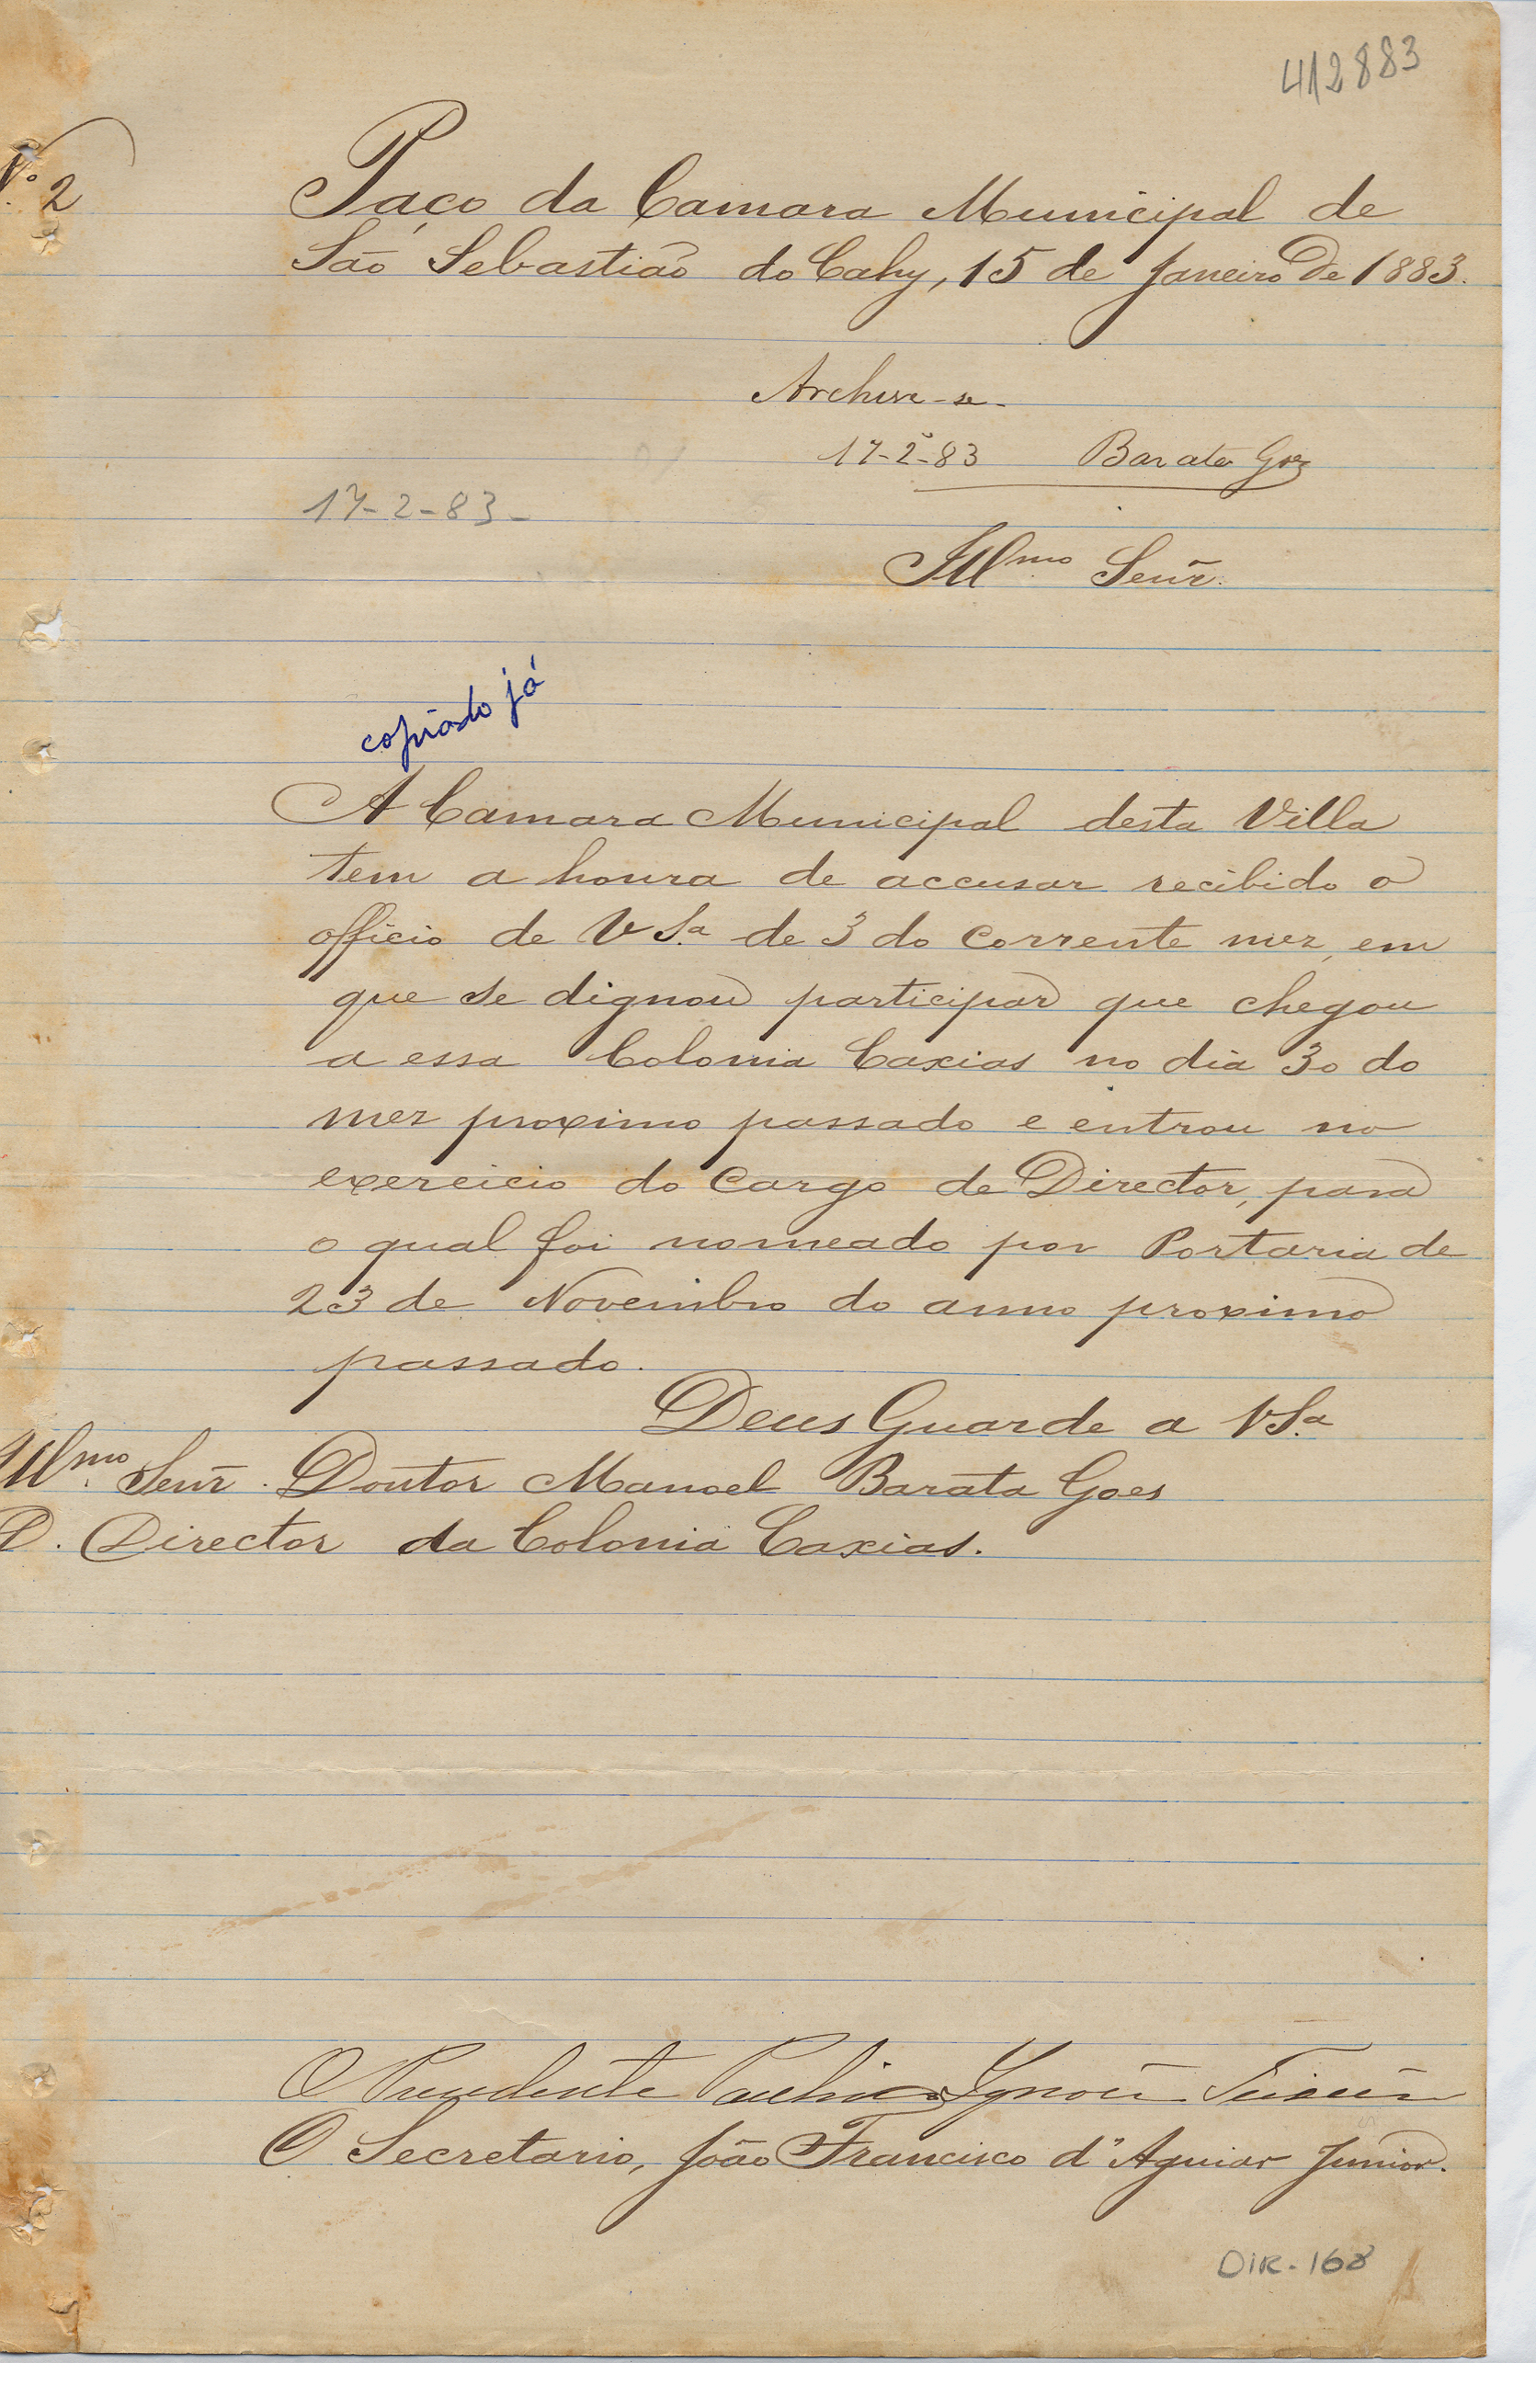 412883
Nº 2
Paço da Camara Municipal de
São Sebastião do Cahy, 15 de Janeiro de 1883.
Archive-se.
17-2-83 Barata Goes
17-2-83-
Illmo Senr.
copiado já
A Camara Municipal desta Villa
tem a honra de accusar recibido o
officio de V Sª de 3 do corrente mez, em
que se dignou participar que chegou
a essa Colonia Caxias no dia 30 do
mez proximo passado e entrou no
exercicio do cargo de Director, para
o qual foi nomeado por Portaria de
23 de Novembro do anno proximo
passado.
Deus Guarde a V Sª
Illmo Senr. Doutor Manoel Barata Goes
D. Director da Colonia Caxias.
O Presidente Paulino Ignacio Teixeira
O Secretario, João Francisco d'Aguiar Junior.
DIR-168